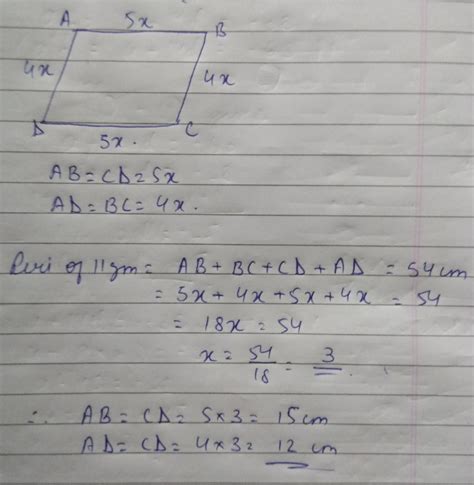 A 5x B
4x 4x
D C
5x.
AB = CD = 5x
AD = BC = 4x.
Peri of 11gm = AB + BC + CD + AD = 54cm
= 5x + 4x + 5x + 4x = 54
= 18x = 54
x = 54/18 = 3
∴ AB = CD = 5×3 = 15cm
AD = CD = 4×3 = 12 cm